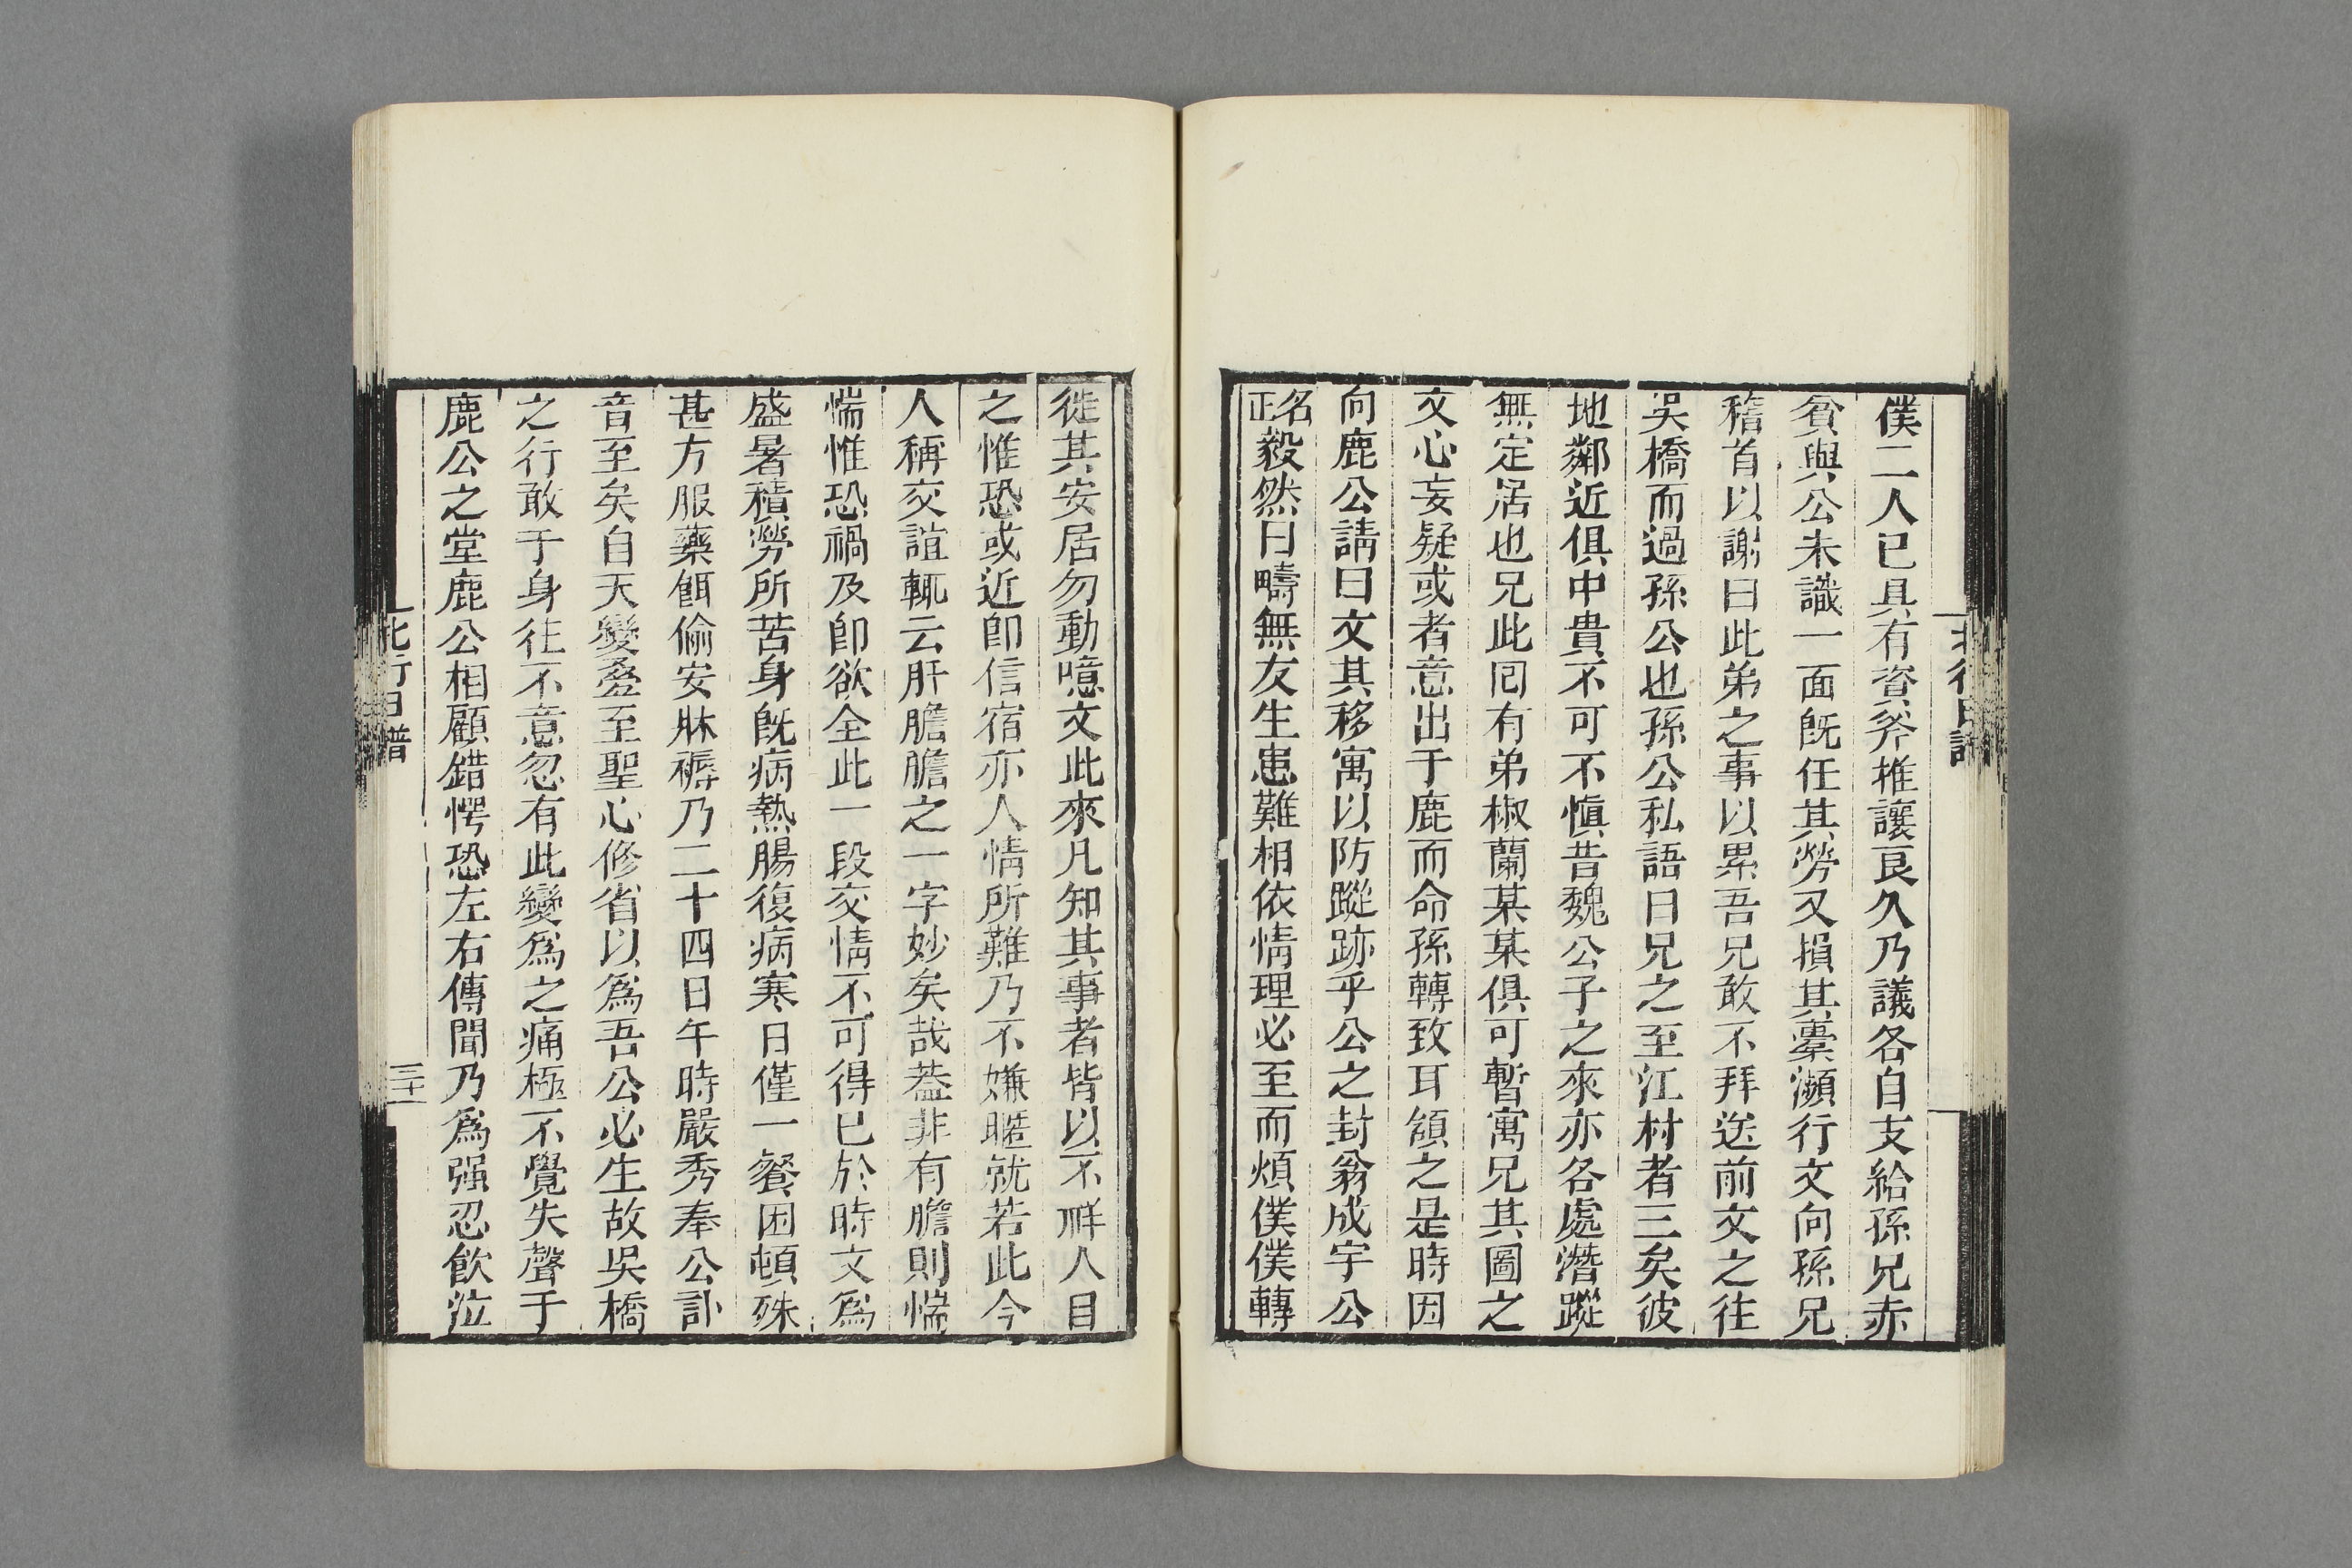 僕二人已具有資斧推讓良久乃議各自支給孫兄赤
貧與公未識一面旣任其勞又損其橐瀕行文向孫兄
稽首以謝曰此弟之事以累吾兄敢不拜送前文之往
吳橋而過孫公也孫公私語曰兄之至江村者三矣彼
地鄰近俱中貴不可不愼昔魏公子之來亦各處潛蹤
無定居也兄此囘有弟椒蘭某某俱可暫寓兄其圖之
文心妄疑或者意出于鹿而命孫轉致耳頷之是時因
向鹿公請曰文其移寓以防蹤跡乎公之封翁成宇公
名正毅然曰疇無友生患難相依情理必至而煩僕僕轉
徙其安居勿動噫文此來凡知其事者皆以不祥人目
之惟恐或近卽信宿亦人情所難乃不嫌暱就若此今
人稱交誼輒云肝膽膽之一字妙矣哉葢非有膽則惴
惴惟恐禍及卽欲全此一段交情不可得已於時文爲
盛暑積勞所苦身旣病熱腸復病寒日僅一餐困頓殊
甚方服藥餌偷安牀褥乃二十四日午時嚴秀奉公訃
音至矣自天變疊至聖心修省以爲吾公必生故吳橋
之行敢于身往不意忽有此變爲之痛極不覺失聲于
鹿公之堂鹿公相顧錯愕恐左右傳聞乃爲强忍飮泣
北行日譜
三十一